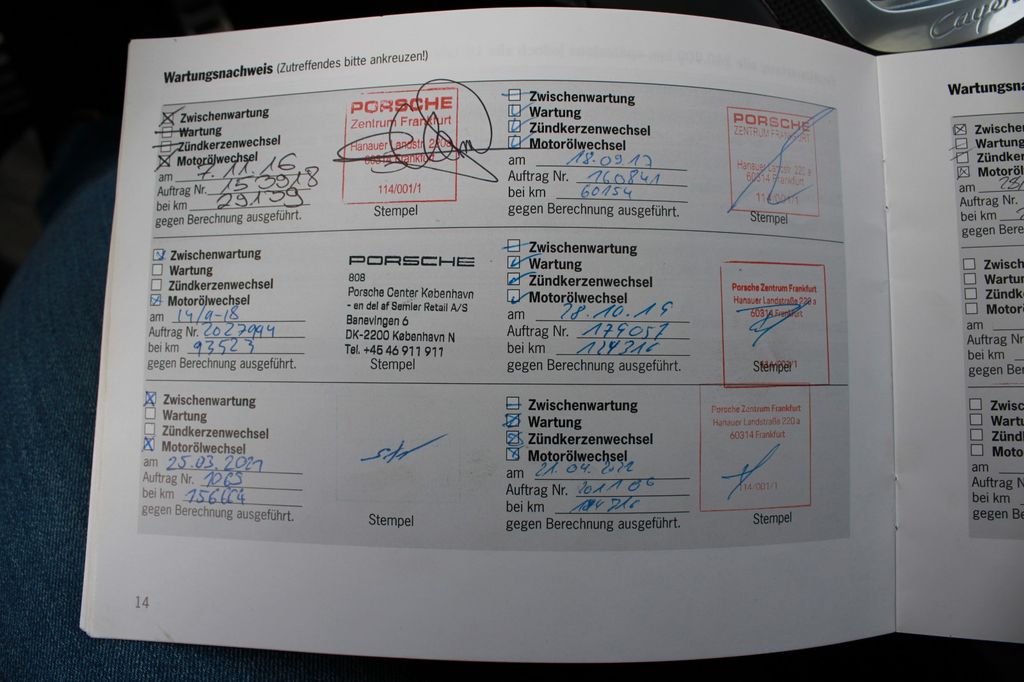 Wartungsnachweis (Zutreffendes bitte ankreuzen!)
Zwischenwartung
Wartung
Zündkerzenwechsel
Motorölwechsel
am 7.11.16
Auftrag Nr. 153918
bei km 29139
gegen Berechnung ausgeführt.
PORSCHE
Zentrum Frankfurt
Hanauer Landstr. 220a
60314 Frankfurt
114/001/1
Stempel
Zwischenwartung
Wartung
Zündkerzenwechsel
Motorölwechsel
am 18.09.17
Auftrag Nr. 160841
bei km 60154
gegen Berechnung ausgeführt.
PORSCHE
ZENTRUM FRANKFURT
Hanauer Landstr. 220 a
60314 Frankfurt
114/001/1
Stempel
Zwischenwartung
Wartung
Zündkerzenwechsel
Motorölwechsel
am 14/9-18
Auftrag Nr. 2027994
bei km 93523
gegen Berechnung ausgeführt.
PORSCHE
808
Porsche Center København
- en del af Semler Retail A/S
Banevingen 6
DK-2200 København N
Tel. +45 46 911 911
Stempel
Zwischenwartung
Wartung
Zündkerzenwechsel
Motorölwechsel
am 28.10.19
Auftrag Nr. 179057
bei km 124316
gegen Berechnung ausgeführt.
Porsche Zentrum Frankfurt
Hanauer Landstraße 220 a
60314 Frankfurt
114/001/1
Stempel
Zwischenwartung
Wartung
Zündkerzenwechsel
Motorölwechsel
am 25.03.2021
Auftrag Nr. 1065
bei km 156664
gegen Berechnung ausgeführt.
Stempel
Zwischenwartung
Wartung
Zündkerzenwechsel
Motorölwechsel
am 21.04.2022
Auftrag Nr. 201106
bei km
gegen Berechnung ausgeführt.
Porsche Zentrum Frankfurt
Hanauer Landstraße 220 a
60314 Frankfurt
114/001/1
Stempel
14
Wartungsna
Zwischen
Wartung
Zündke
Motoröl
am
Auftrag N
bei km
gegen B
Zwisch
Wartun
Zündk
Motor
am
Auftrag
bei km
gegen
Zwisc
Wart
Zünd
Moto
am
Auftra
bei km
gegen B